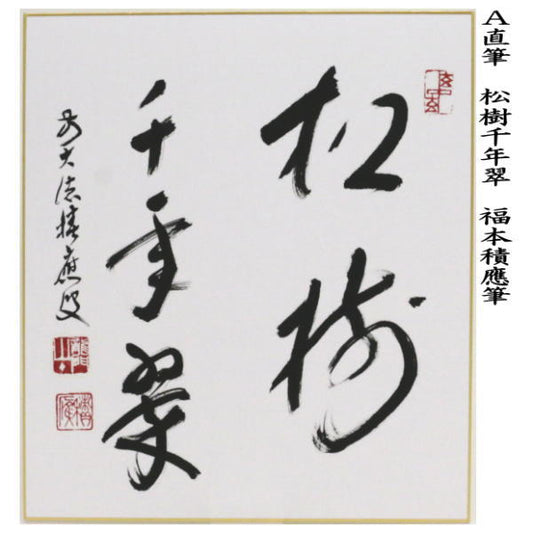 A直筆 松樹千年翠 福本積應筆
松樹
千年翠